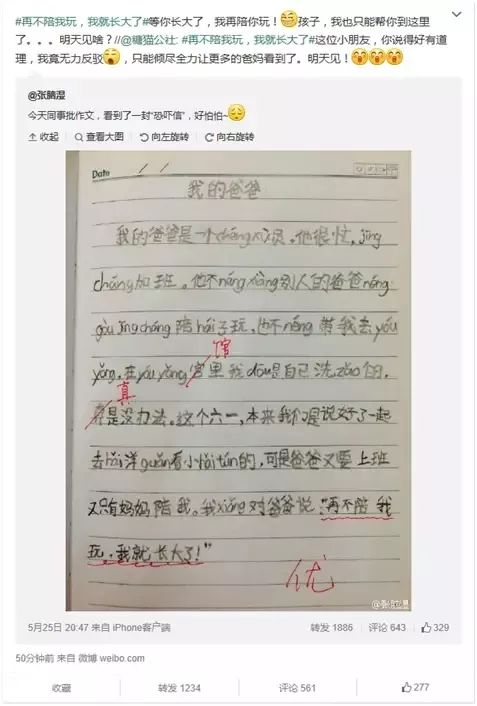 #再不陪我玩，我就长大了#等你长大了，我再陪你玩！孩子，我也只能帮你到这里
了。。。明天见啥？//@糖猫公社: #再不陪我玩，我就长大了#这位小朋友，你说得好有道
理，我竟无力反驳，只能倾尽全力让更多的爸妈看到了。明天见！
@张脑湿
今天同事批作文，看到了一封“恐吓信”，好怕怕~
收起 查看大图 向左旋转 向右旋转
Date
我的爸爸
我的爸爸是一个chéng序员。他很忙，jīng
cháng加班。他不néng xiàng别人的爸爸néng
gòu jīng cháng 陪hái子玩，也不néng 带我去yóu
yǒng。在yóu yǒng宫里我dōu是自己洗zǎo的，
馆
真
是没办法。这个六一，本来我们是说好了一起
去hǎi洋guǎn看小hǎi tún的，可是爸爸又要上班
又只有妈妈陪我。我xiǎng对爸爸说：“再不陪我
玩，我就长大了！”
优
@张脑湿
5月25日 20:47 来自 iPhone客户端
转发 1886 评论 643 329
50分钟前 来自 微博 weibo.com
收藏 转发 1234 评论 561 277